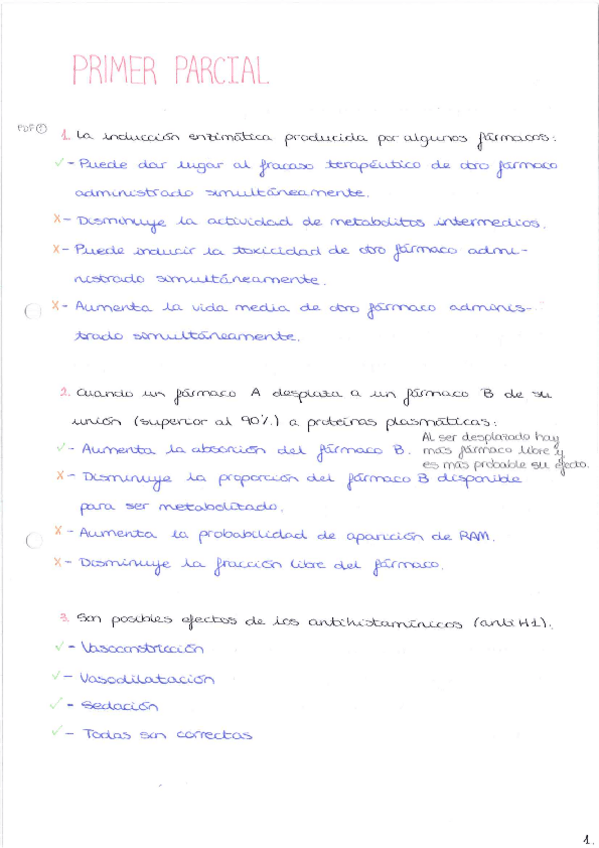 PRIMER PARCIAL
PDF ①
1. La inducción enzimática producida por algunos fármacos:
✓ - Puede dar lugar al fracaso terapéutico de otro fármaco
administrado simultáneamente.
X - Disminuye la actividad de metabolitos intermedios.
X - Puede inducir la toxicidad de otro fármaco admi-
nistrado simultáneamente.
X - Aumenta la vida media de otro fármaco adminis-
trado simultáneamente.
2. Cuando un fármaco A desplaza a un fármaco B de su
unión (superior al 90%) a proteínas plasmáticas:
✓ - Aumenta la absorción del fármaco B.
Al ser desplazado hay
más fármaco libre y
es más probable su efecto.
X - Disminuye la proporción del fármaco B disponible
para ser metabolitado.
X - Aumenta la probabilidad de aparición de RAM.
X - Disminuye la fracción libre del fármaco.
3. Son posibles efectos de los antihistamínicos (anti H1).
✓ - Vasoconstricción
✓ - Vasodilatación
✓ - Sedación
✓ - Todas son correctas
1.